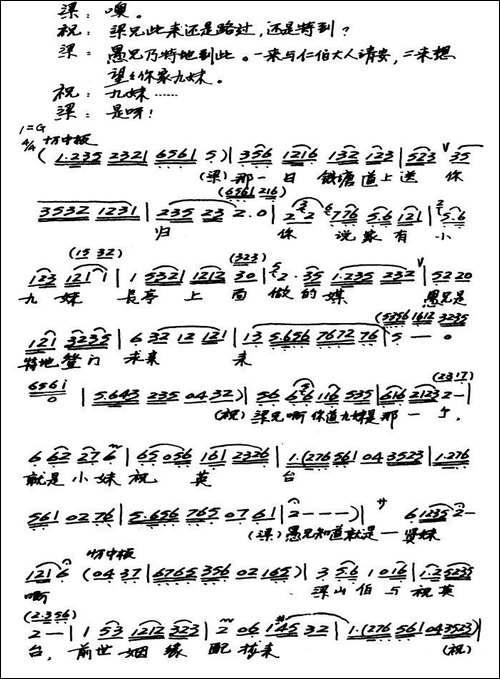 梁：噢。
祝：梁兄此来还是路过，还是特到？
梁：愚兄乃特地到此。一来与仁伯大人请安，二来想
望望你家九妹。
祝：九妹……
梁：是呀！
1=G
4/4 切中板
( 1.235 2321 6561 5 ) | 356 1216 132 123 | 523 35
(梁) 那一日 钱塘道上送你
(6561 216)
3532 1231 | 235 23 2.0 | 2 2 776 5.6 121 | 5.6
归 你说家有小
(15 32) (323)
123 121 1 | 1 5321 1212 30 | 2.35 1.235 232 | 52 20
九妹 长亭上面做的媒 愚兄是
(5356 1612 3235
121 3235 | 6 32 12 121 | 13 5.656 7672 76 | 5 — 0
特地登门求亲来
6561 0 | 5.643 235 04 32 ) | 56 676 116 535 | 616 2123 2 — |
(2317)
(祝) 梁兄啊你道九妹是那一个，
6 62 27 6 | 65 056 161 2326 | 1.(276 561 04 3523 | 1.276
就是小妹祝英台
561 02 76 | 5.656 765 07 61 | 2 - - - ) | サ 6 1235 2 -
(梁) 愚兄知道就是一贤妹
切中板
121 6 (04 37 | 6765 356 02 165 ) | 3 5.6 1 016 | 1.2 5235
啊 梁山伯与祝英
(2.356)
2 — | 1 53 1212 323 | 2 06 145 32 | 1.(276 561 043523) |
台，前世姻缘配拢来 (祝)